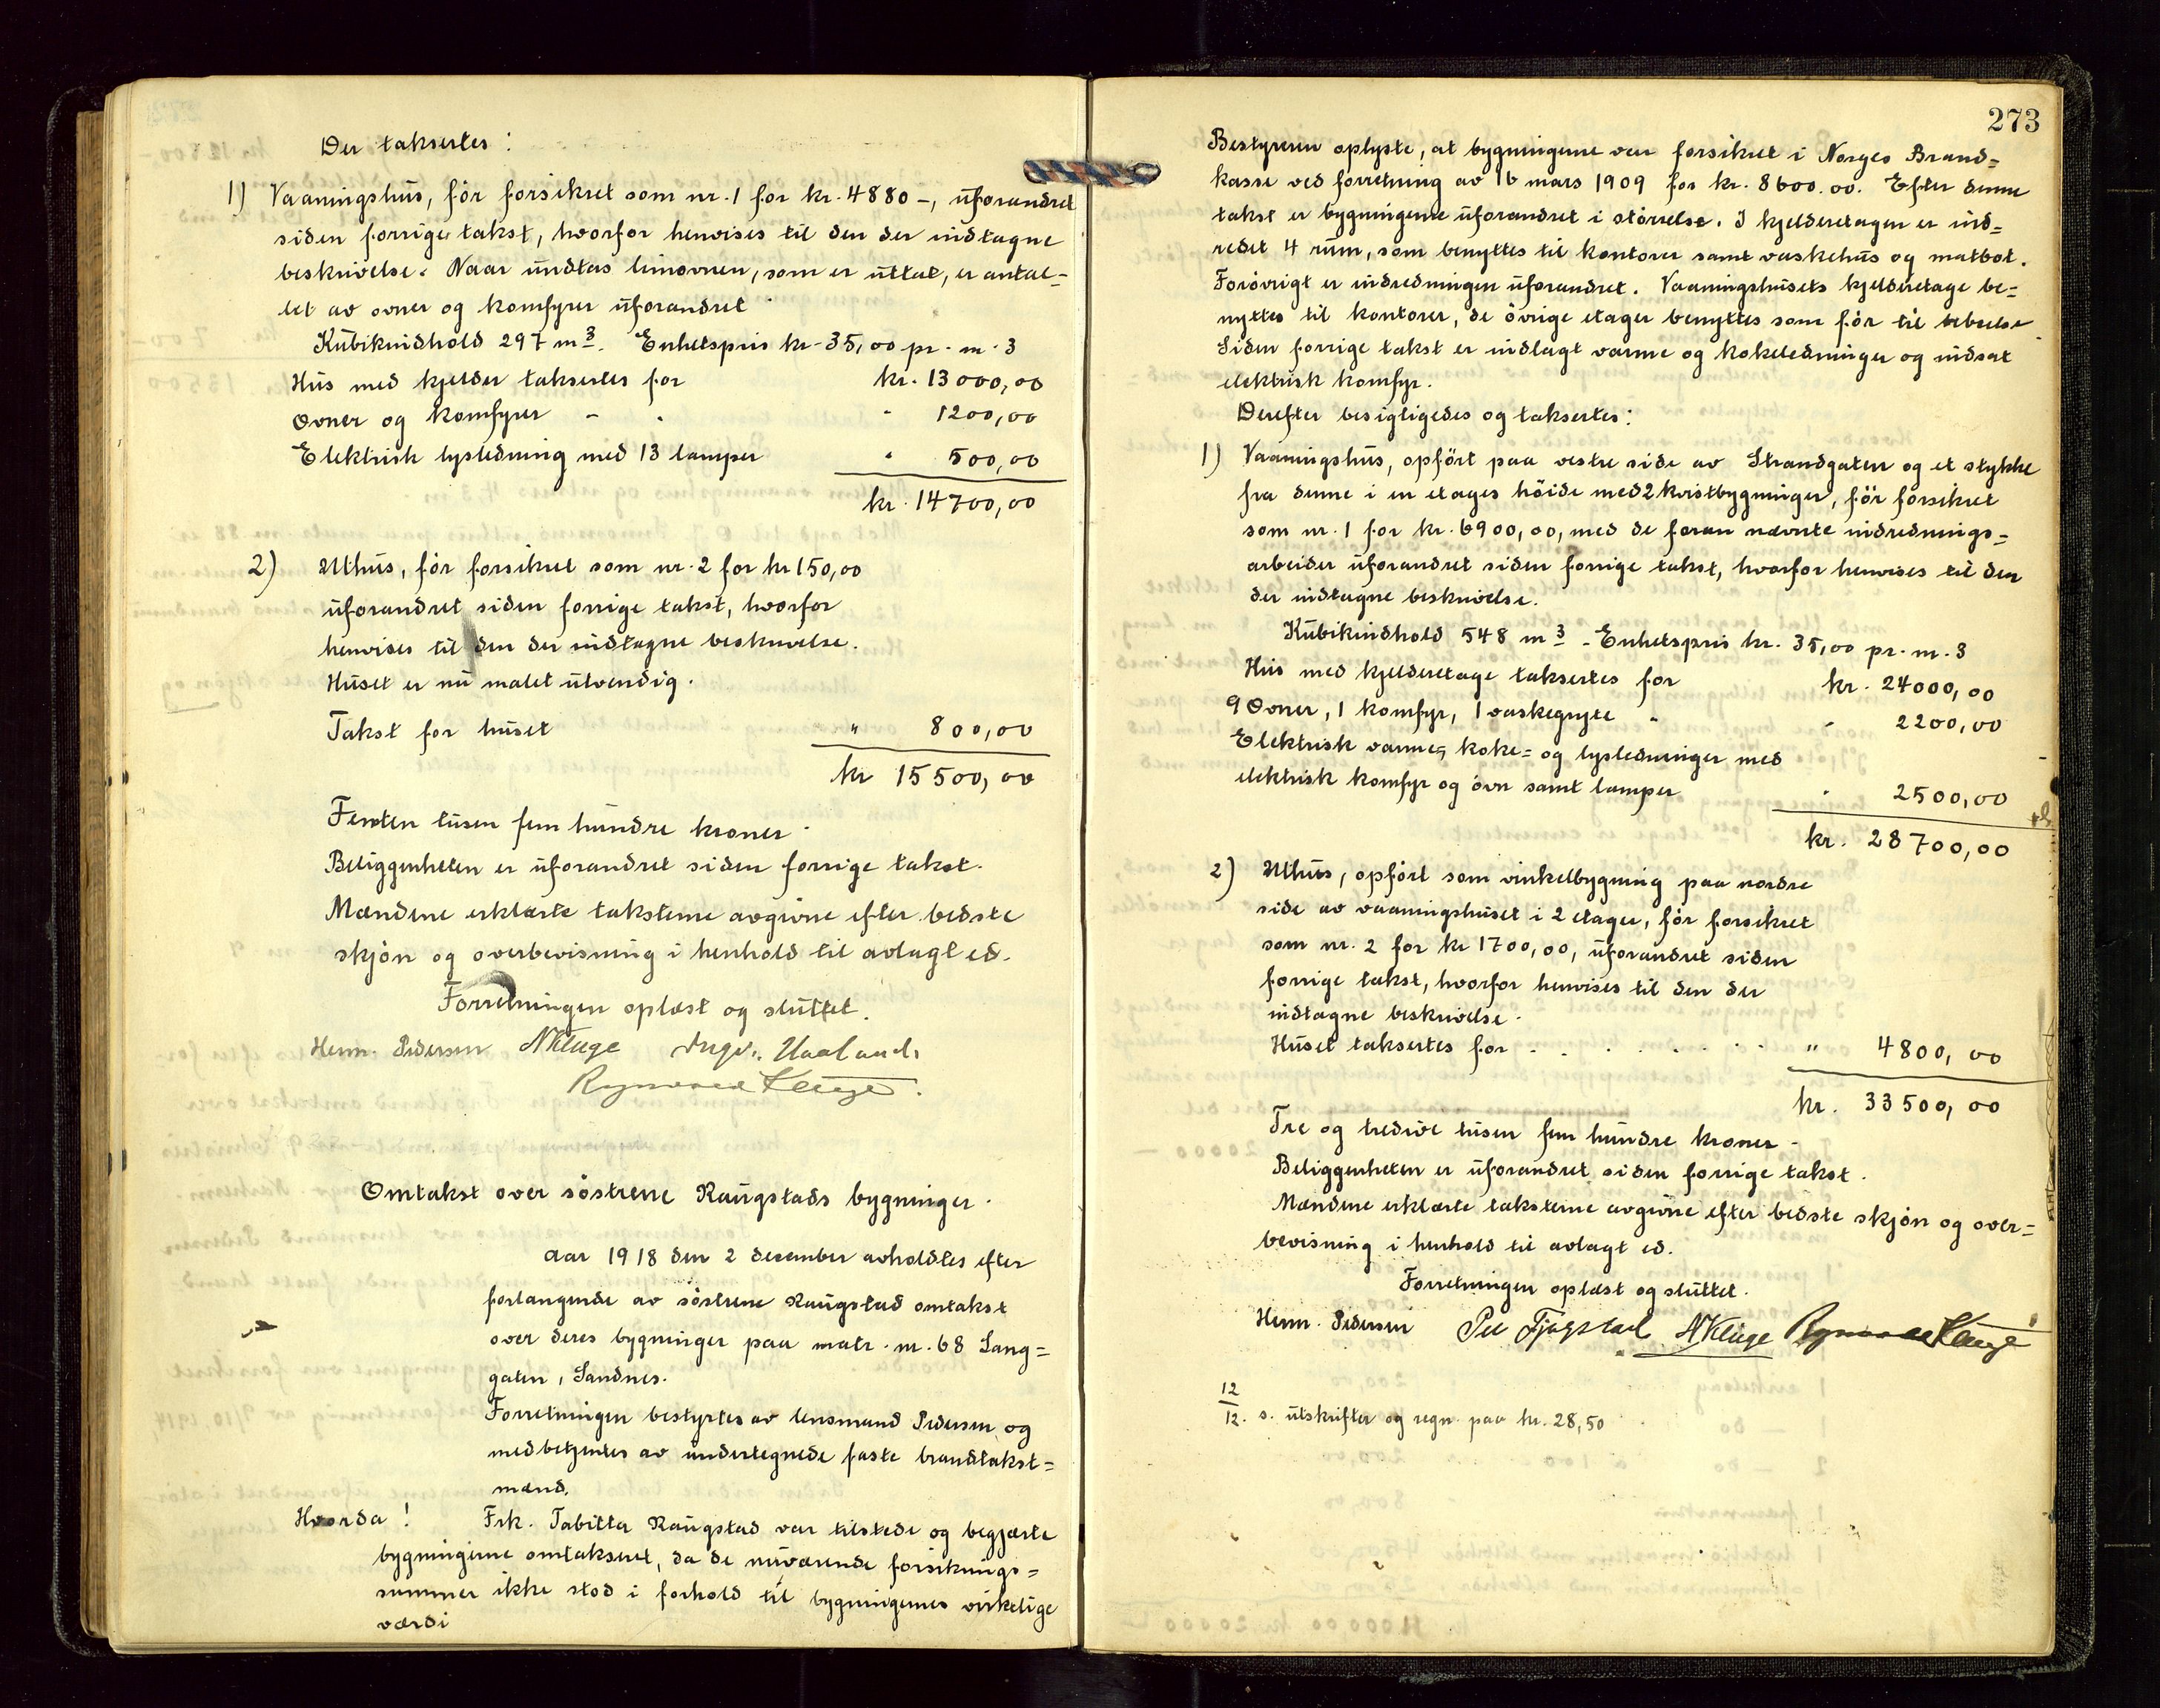 Der taksertes:
1) Vaaningshus, før forsikret som nr. 1 for kr. 4880 –, uforandret
siden forrige takst, hvorfor henvises til den der indtagne
beskrivelse. Naar undtas limovnen, som er uttat, er antal=
let av ovner og komfyrer uforandret.
Kubikindhold 297 m 3. Enhetspris kr. 35,00 pr. m. 3
Hus med kjelder taksertes for kr. 13000,00
Ovner og komfyrer – . " 1200,00
Elektrisk lysledning med 13 lamper " 500,00
kr. 14700,00
2) Uthus, før forsikret som nr. 2 for kr 150,00
uforandret siden forrige takst, hvorfor
henvises til den der indtagne beskrivelse.
Huset er nu malet utvendig.
Takst for huset " 800,00
kr 15500,00
Femten tusen fem hundre kroner.
Beliggenheten er uforandret siden forrige takst.
Mændene erklærte taksterne avgivne efter bedste
skjøn og overbevisning i henhold til avlagt ed.
Forretningen oplæst og sluttet.
Henn. Pedersen NKluge Ingv. Haaland.
Rasmus Kluge.
Omtakst over søstrene Raugstads bygninger.
Aar 1918 den 2 december avholdtes efter
forlangende av søstrene Raugstad omtakst
over deres bygninger paa matr. nr. 68 Lang=
gaten, Sandnes.
Forretningen bestyrtes av lensmand Pedersen og
medbetjentes av undertegnede faste brandtakst=
mænd.
Hvorda! Frk. Tabitta Raugstad var tilstede og begjærte
bygningerne omtakseret, da de nuværende forsiknings=
summer ikke stod i forhold til bygningernes virkelige
værdi
273
Bestyreren oplyste, at bygningerne var forsikret i Norges Brand=
kasse ved forretning av 16 mars 1909 for kr. 8600.00. Efter denne
takst er bygningerne uforandret i størrelse. I kjelderetagen er ind=
redet 4 rum, som benyttes til kontorer samt vaskehus og matbot.
Forøvrigt er indredningen uforandret. Vaaningshusets kjelderetage be=
nyttes til kontorer, de øvrige etager benyttes som før til beboelse.
Siden forrige takst er indlagt varme og kokeledninger og indsat
elektrisk komfyr.
Derefter besigtigedes og taksertes:
1) Vaaningshus, opført paa vestre side av Strandgaten og et stykke
fra denne i en etages høide med 2 kvistbygninger, før forsikret
som nr. 1 for kr. 6900,00, med de foran nævnte indrednings=
arbeider uforandret siden forrige takst, hvorfor henvises til den
der indtagne beskrivelse.
Kubikindhold 548 m 3 - Enhetspris kr. 35,00 pr. m. 3
Hus med kjelderetage taksertes for kr. 24000,00
9 Ovner, 1 komfyr, 1 vaskegryte " " 2200,00
Elektrisk varme, koke= og lysledninger med
elektrisk komfyr og ovn samt lamper " 2500,00
kr. 28700,00
2) Uthus, opført som vinkelbygning paa nordre
side av vaaningshuset i 2 etager, før forsikret
som nr. 2 for kr 1700,00, uforandret siden
forrige takst, hvorfor henvises til den der
indtagne beskrivelse.
Huset taksertes for . . . . . . " 4800,00
kr. 33500,00
Tre og tredive tusen fem hundre kroner –
Beliggenheten er uforandret siden forrige takst.
Mændene erklærte taksterne avgivne efter bedste skjøn og over=
bevisning i henhold til avlagt ed.
Forretningen oplæst og sluttet.
Henn. Pedersen NKluge Rasmus Kluge
12/12. s. utskrifter og regn. paa kr. 28,50